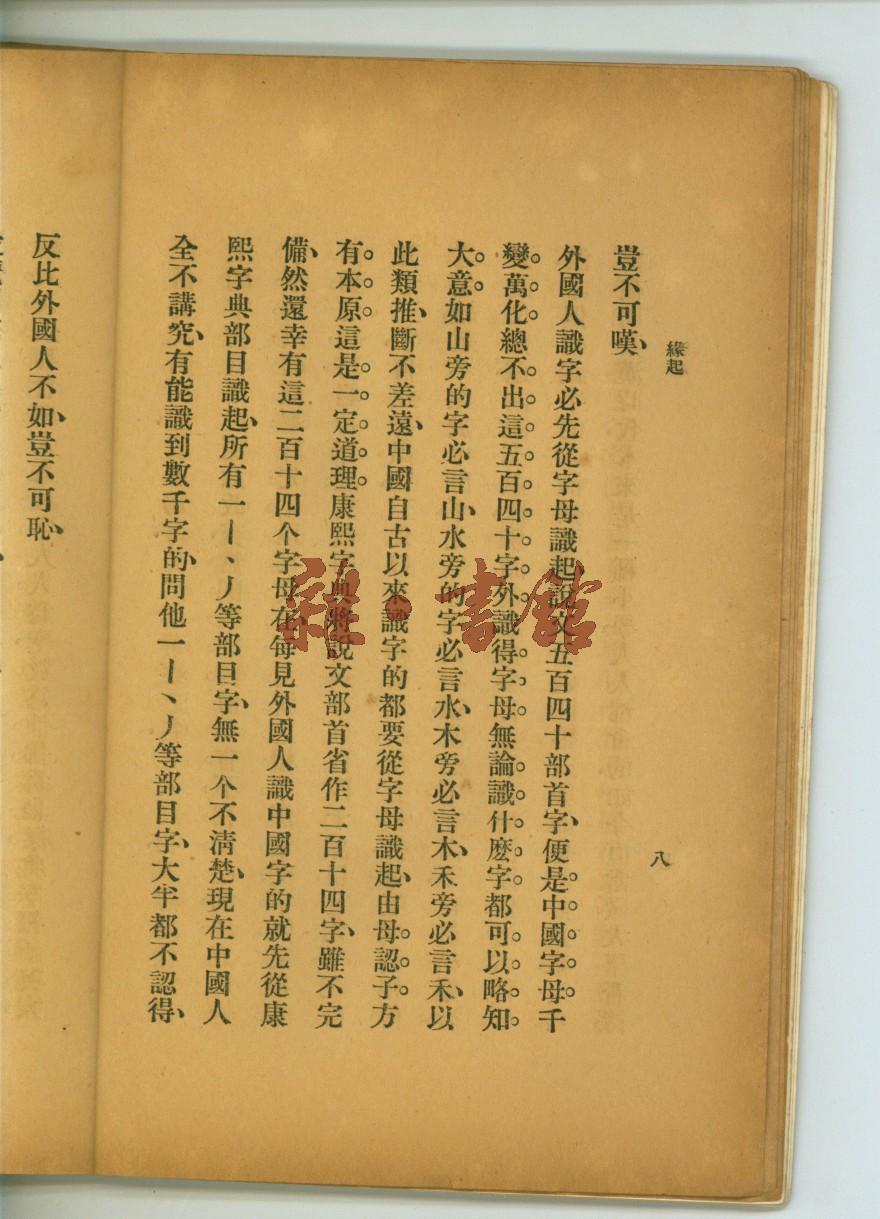 緣起
八
豈不可嘆、
外國人識字必先從字母識起、說文五百四十部首字、便是中國字母千
變萬化總不出這五百四十字外識得字母無論識什麼字都可以略知
大意如山旁的字必言山、水旁的字必言水、木旁必言木、禾旁必言禾、以
此類推、斷不差遠、中國自古以來識字的都要從字母識起、由母認子方
有本原這是一定道理康熙字典將說文部首省作二百十四字、雖不完
備、然還幸有這二百十四个字母在、每見外國人識中國字的就先從康
熙字典部目識起、所有一丨丶丿等部目字、無一个不清楚、現在中國人
全不講究、有能識到數千字的、問他一丨丶丿等部目字、大半都不認得、
反比外國人不如、豈不可恥、
雜·書館